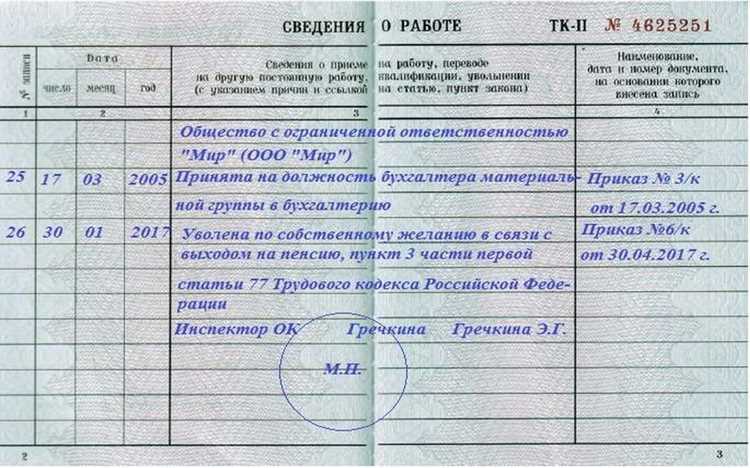 СВЕДЕНИЯ О РАБОТЕ ТК-II № 4625251
№ записи
Дата
число месяц год
Сведения о приеме на работу, переводе
на другую постоянную работу, квалификации, увольнении
(с указанием причин и ссылкой на статью, пункт закона)
Наименование,
дата и номер документа,
на основании которого
внесена запись
1 2 3 4
Общество с ограниченной ответственностью
"Мир" (ООО "Мир")
25 17 03 2005 Принята на должность бухгалтера материаль- Приказ № 3/к
ной группы в бухгалтерию от 17.03.2005 г.
26 30 01 2017 Уволена по собственному желанию в связи с Приказ №6/к
выходом на пенсию, пункт 3 части первой от 30.04.2017 г.
статьи 77 Трудового кодекса Российской Феде-
рации
Инспектор ОК Гречкина Гречкина Э.Г.
М.П.
2 3